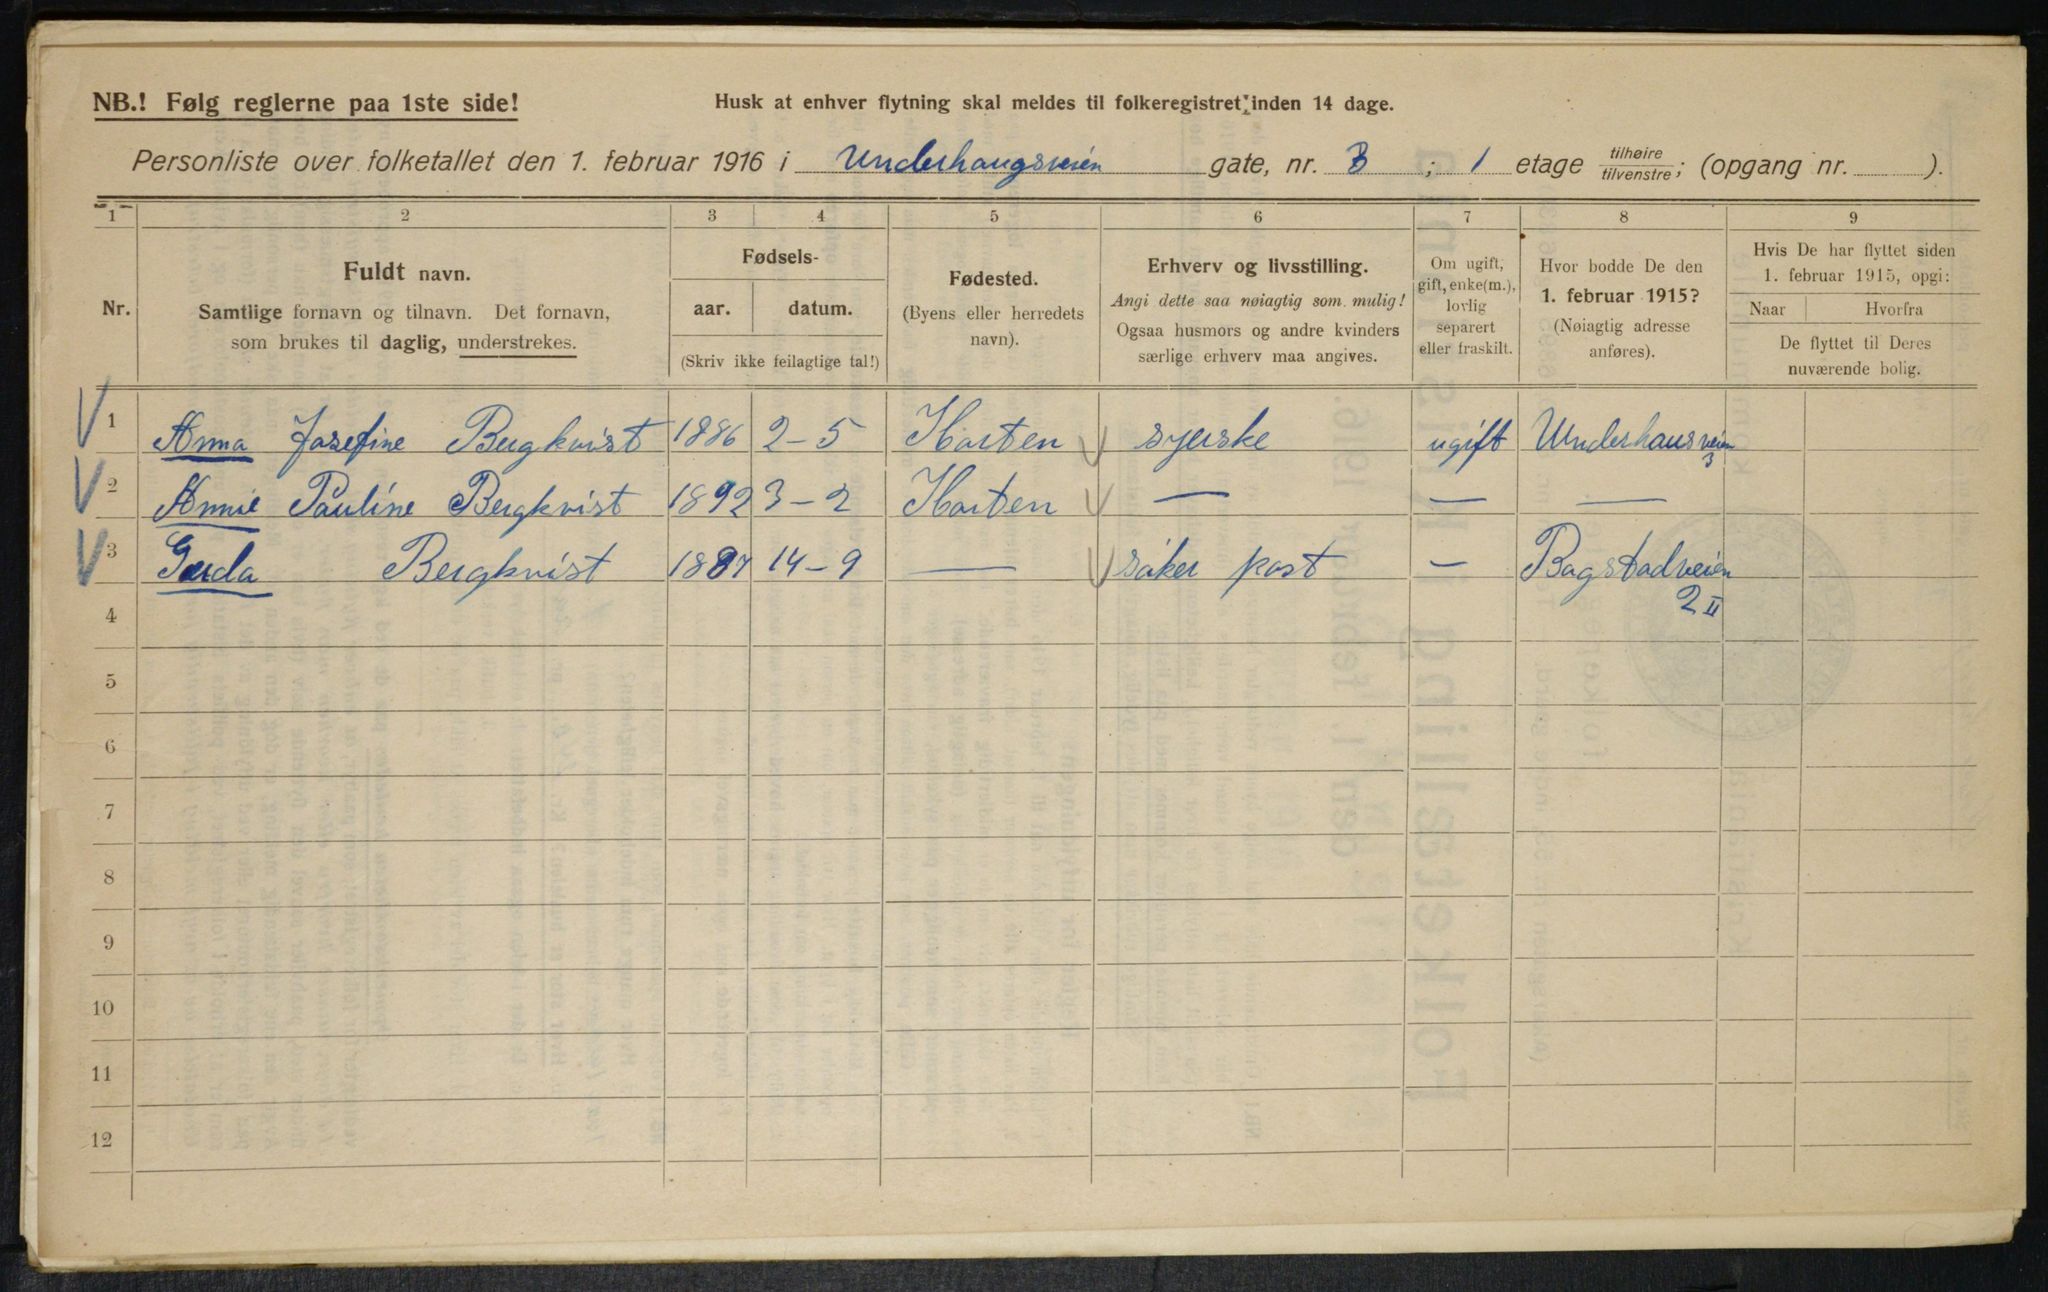 NB.! Følg reglerne paa 1ste side!
Husk at enhver flytning skal meldes til folkeregistret inden 14 dage.
Personliste over folketallet den 1. februar 1916 i Underhaugsveien gate, nr. 3 ; 1 etage tilhøire tilvenstre; (opgang nr. ).
1 2 3 4 5 6 7 8 9
Nr.
Fuldt navn.
Samtlige fornavn og tilnavn. Det fornavn,
som brukes til daglig, understrekes.
Fødsels-
aar. datum.
(Skriv ikke feilagtige tal!)
Fødested.
(Byens eller herredets
navn).
Erhverv og livsstilling.
Angi dette saa nøiagtig som mulig!
Ogsaa husmors og andre kvinders
særlige erhverv maa angives.
Om ugift,
gift, enke(m.),
lovlig
separert
eller fraskilt.
Hvor bodde De den
1. februar 1915?
(Nøiagtig adresse
anføres).
Hvis De har flyttet siden
1. februar 1915, opgi:
Naar Hvorfra
De flyttet til Deres
nuværende bolig.
1 Anna Josefine Bergkvist 1886 2-5 Horten syerske ugift Underhausveien
3
2 Annie Pauline Bergkvist 1892 3-2 Horten — — —
3 Gerda Bergkvist 1887 14-9 — söker post — Bogstadveien
2 II
4
5
6
7
8
9
10
11
12